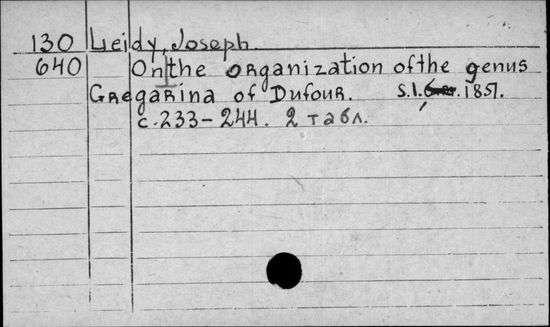 130 Leidy, Joseph.
640 On the organization of the genus
Gregarina of Dufour. S.l., 1851.
с. 233-244. 2 табл.